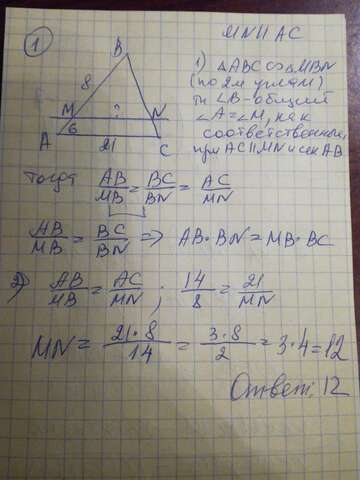 1
MN || AC
B
8
M
?
N
A
6
21
C
1) △ABC ∾ △MBN
(по 2м углам)
тк ∠B - общий
∠A = ∠M, как
соответственные,
при AC || MN и сек AB
тогда AB/MB = BC/BN = AC/MN
AB/MB = BC/BN => AB · BN = MB · BC
2) AB/MB = AC/MN ; 14/8 = 21/MN
MN = 21·8/14 = 3·8/2 = 3·4 = 12
Ответ: 12